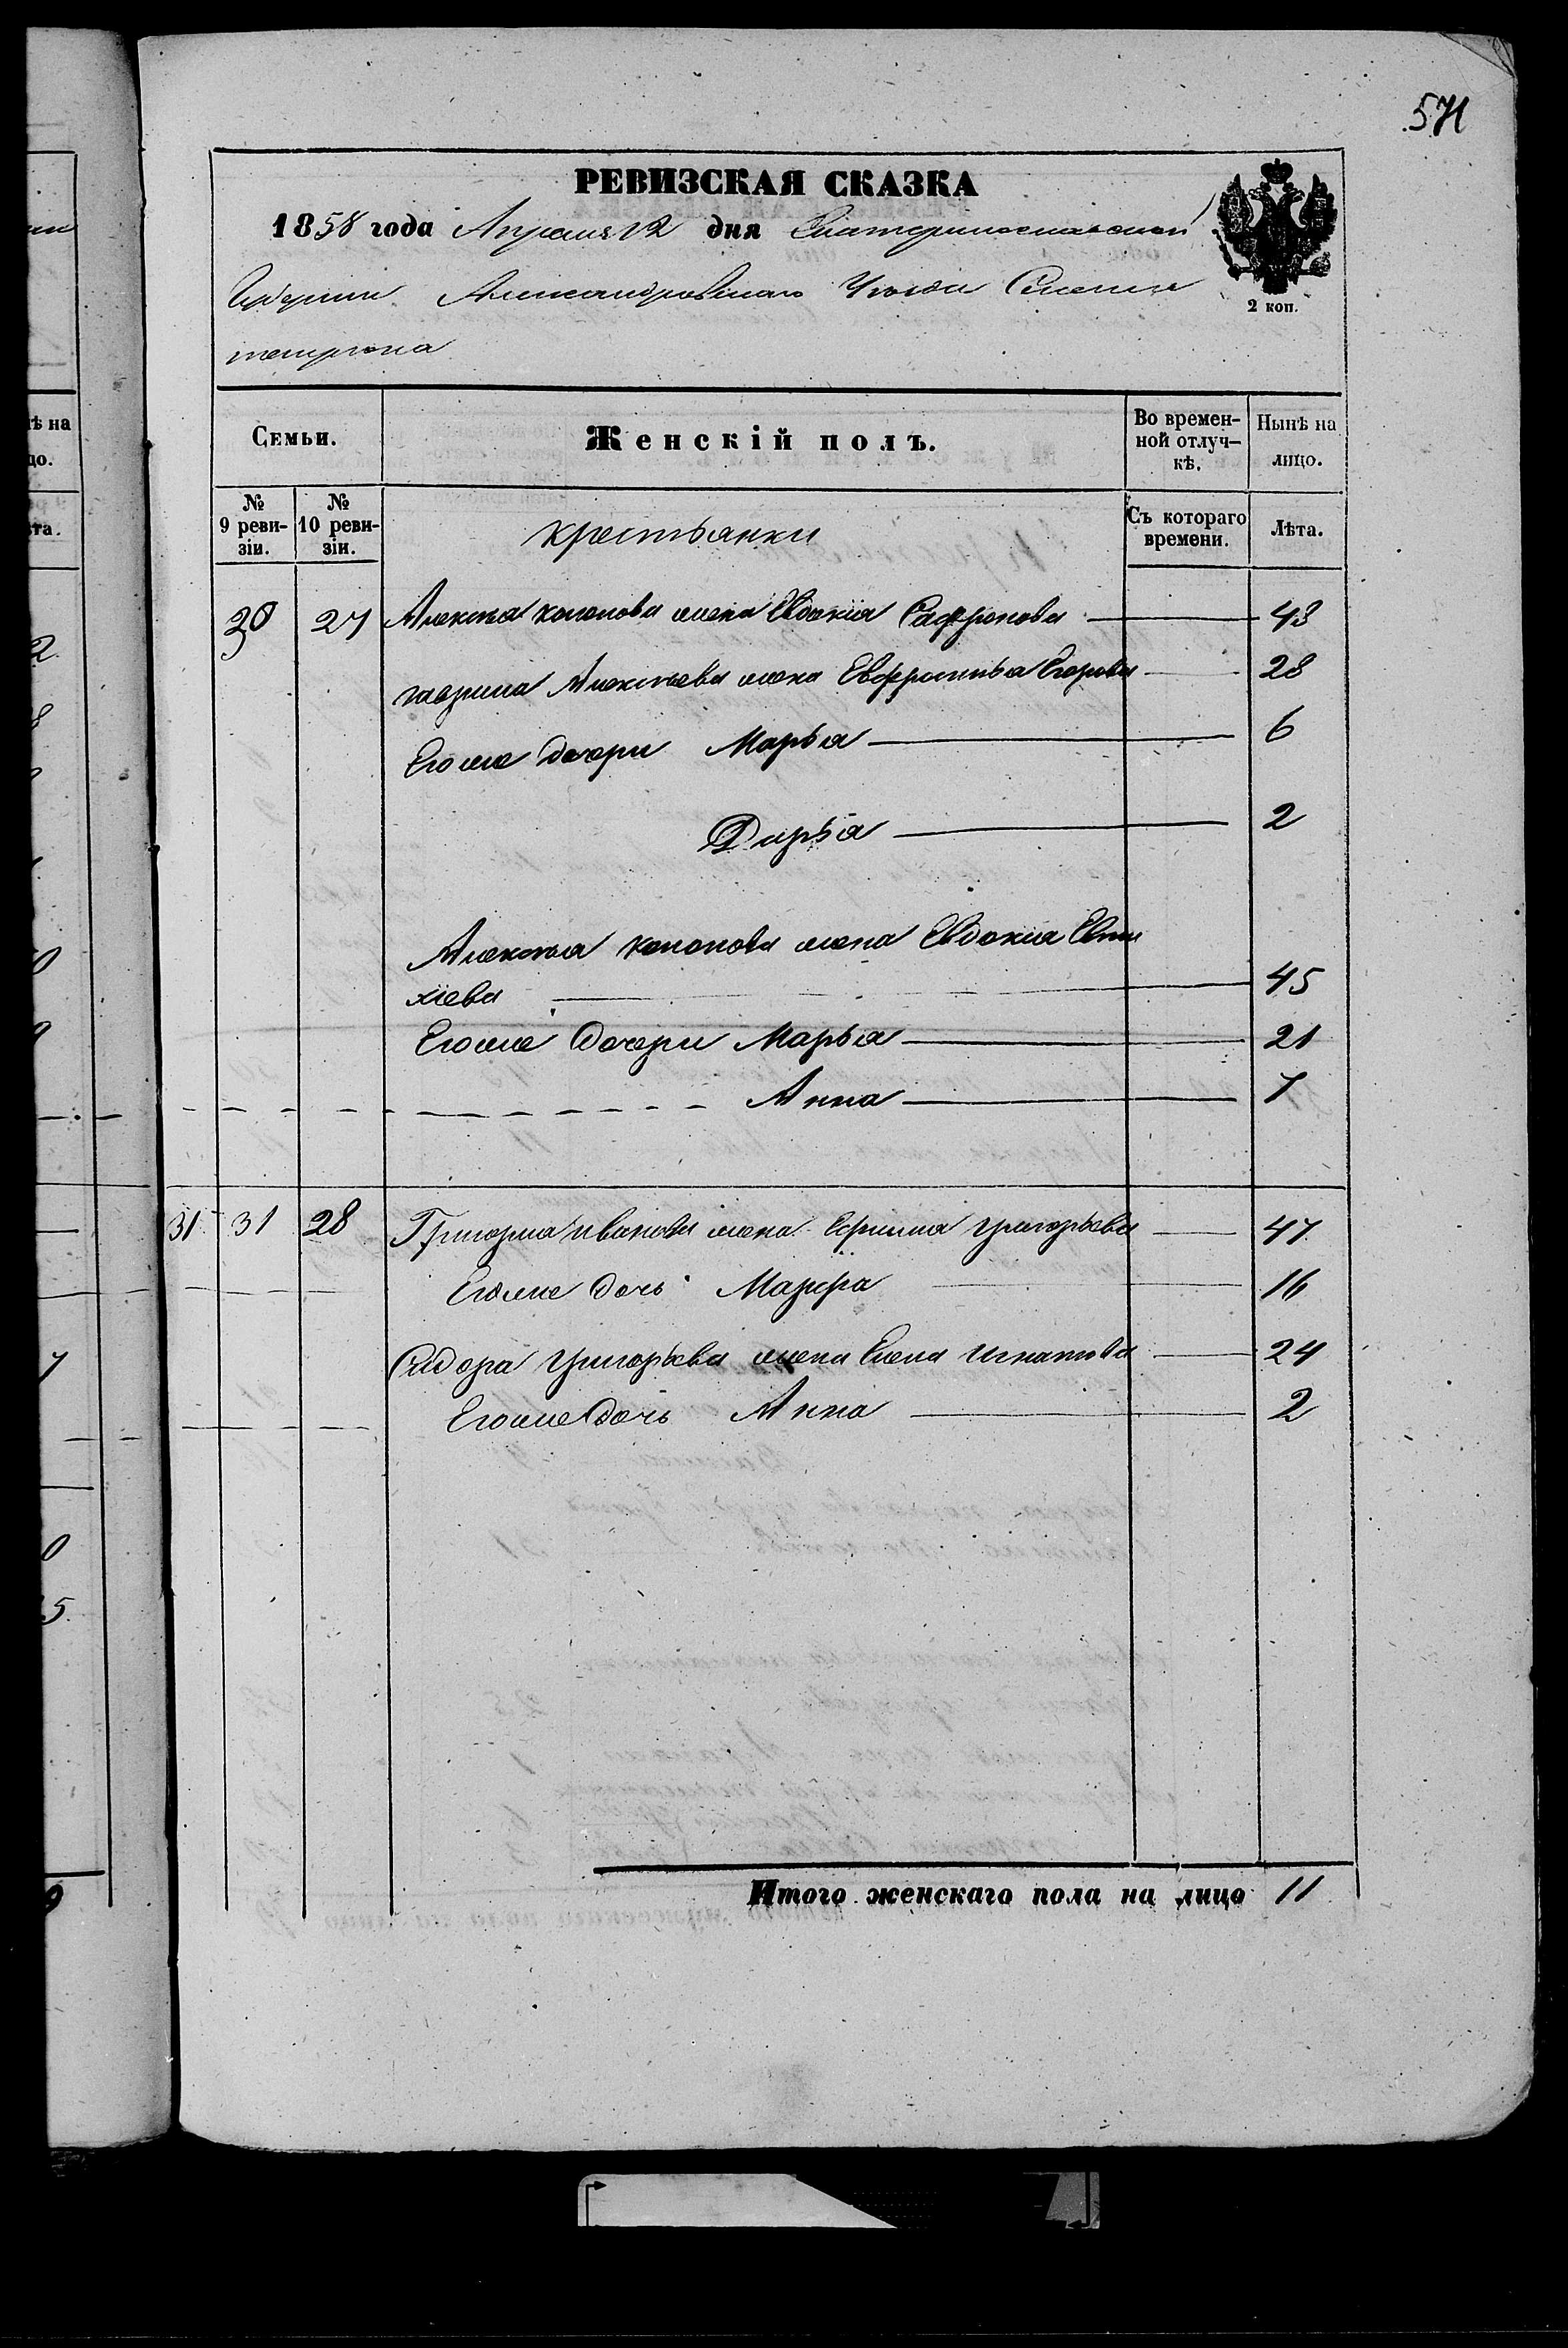 571
РЕВИЗСКАЯ СКАЗКА
1858 года Апреля 12 дня Екатеринославской
Губернии Александровскаго Уѣзда Селенія
2 коп.
Семьи.
Женскій полъ.
Во времен-
ной отлуч-
кѣ.
Нынѣ на
лицо.
№
9 реви-
зіи.
№
10 реви-
зіи.
крестьянки
Съ котораго
времени.
Лѣта.
30 27 Алексѣя Кононова жена Евдокія Сафронова 43
Гаврила Алексѣева жена Евфросинья Егорова 28
Его же дочери Марья 6
Дарья 2
Алексѣя Кононова жена Евдокия Евти
хіева 45
Его же Дочери Марья 21
Анна 7
31 31 28 Григорія Иванова жена Ефимія Григорьева 47
Его же дочь Марфа 16
Сидора Григорьева жена Елена Игнатова 24
Его же дочь Анна 2
Итого женскаго пола на лицо 11